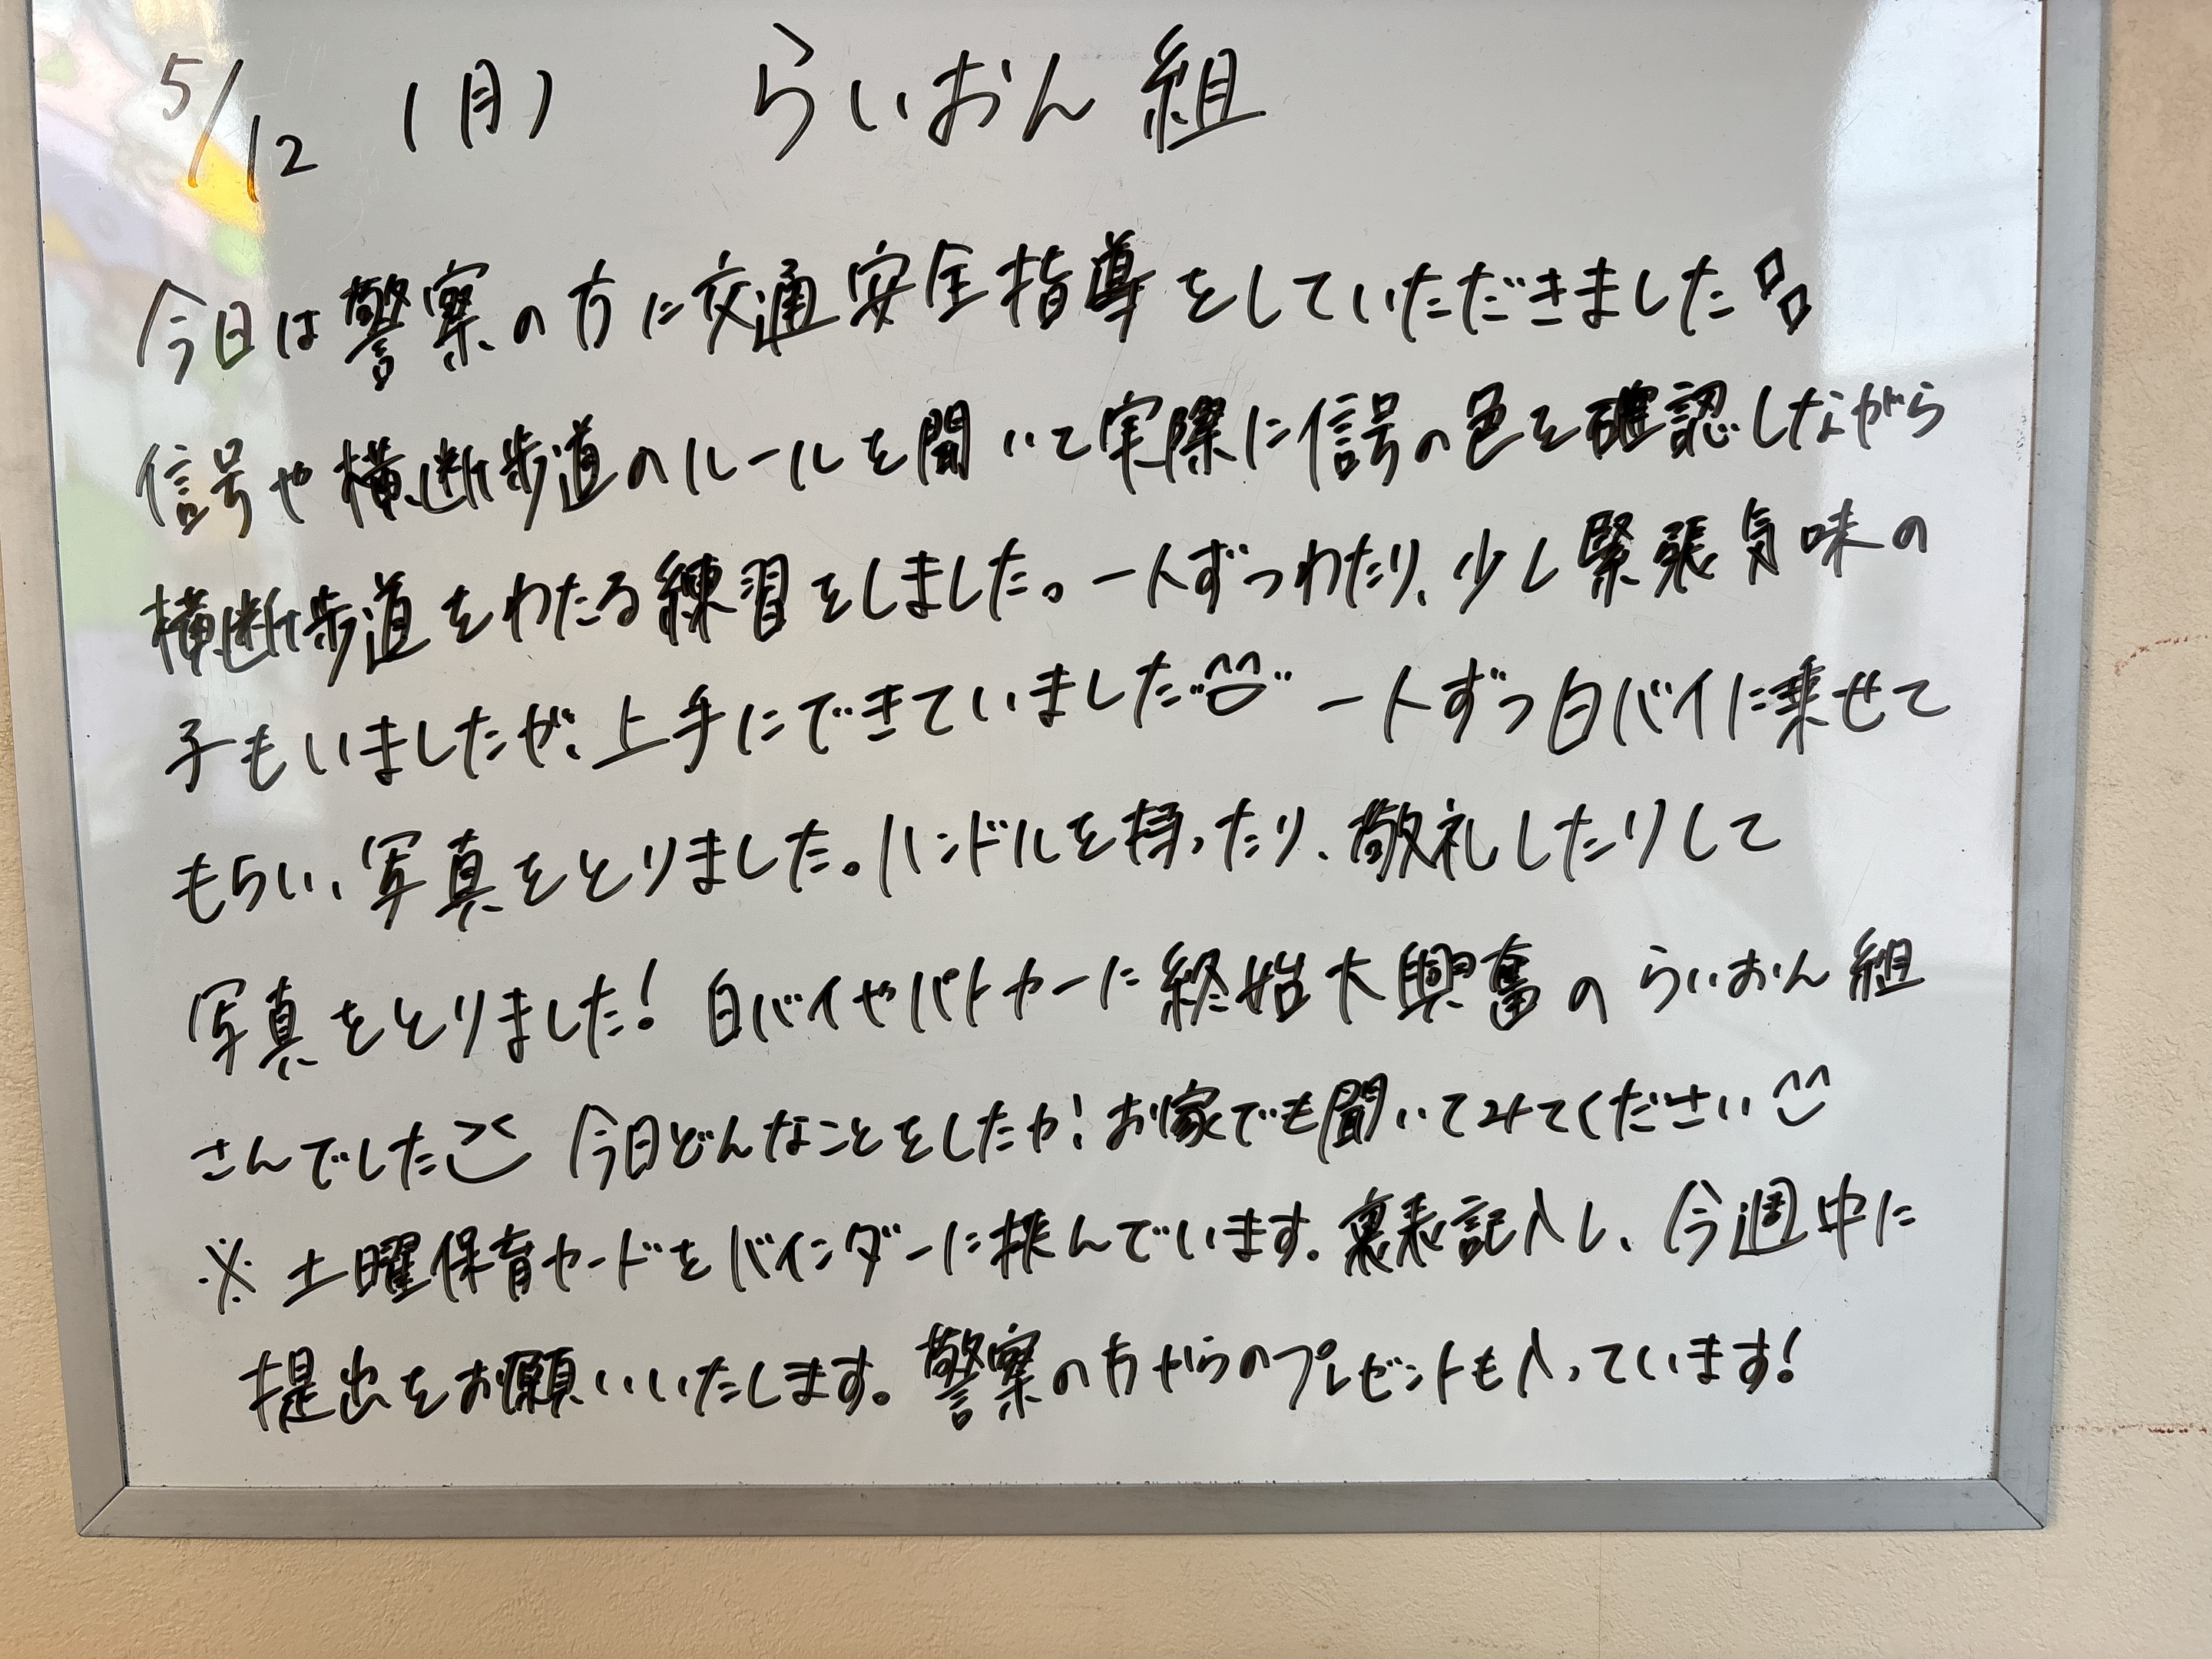 5/12 (月) らいおん組
今日は警察の方に交通安全指導をしていただきました
信号や横断歩道のルールを聞いて実際に信号の色を確認しながら
横断歩道をわたる練習をしました。一人ずつわたり、少し緊張気味の
子もいましたが、上手にできていました 一人ずつ白バイに乗せて
もらい、写真をとりました。ハンドルを持ったり、敬礼したりして
写真をとりました! 白バイやパトカーに終始大興奮のらいおん組
さんでした 今日どんなことをしたか!お家でも聞いてみてください
※土曜保育カードをバインダーに挟んでいます。裏表記入し、今週中に
提出をお願いいたします。警察の方からのプレゼントも入っています!